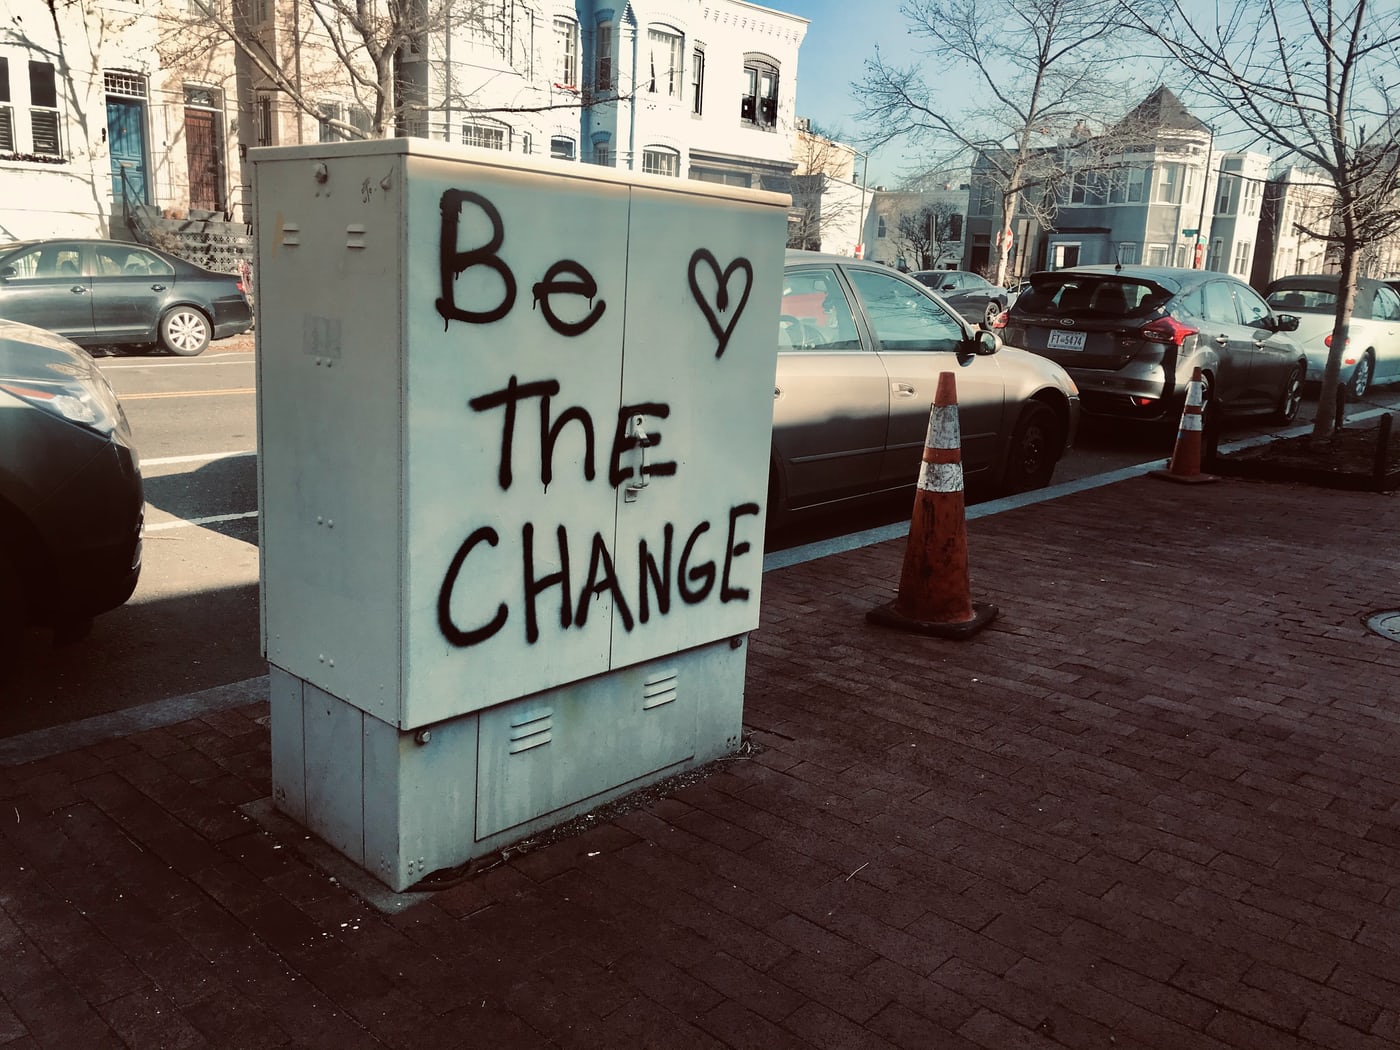 Be
ThE
CHANGE
FT-5474